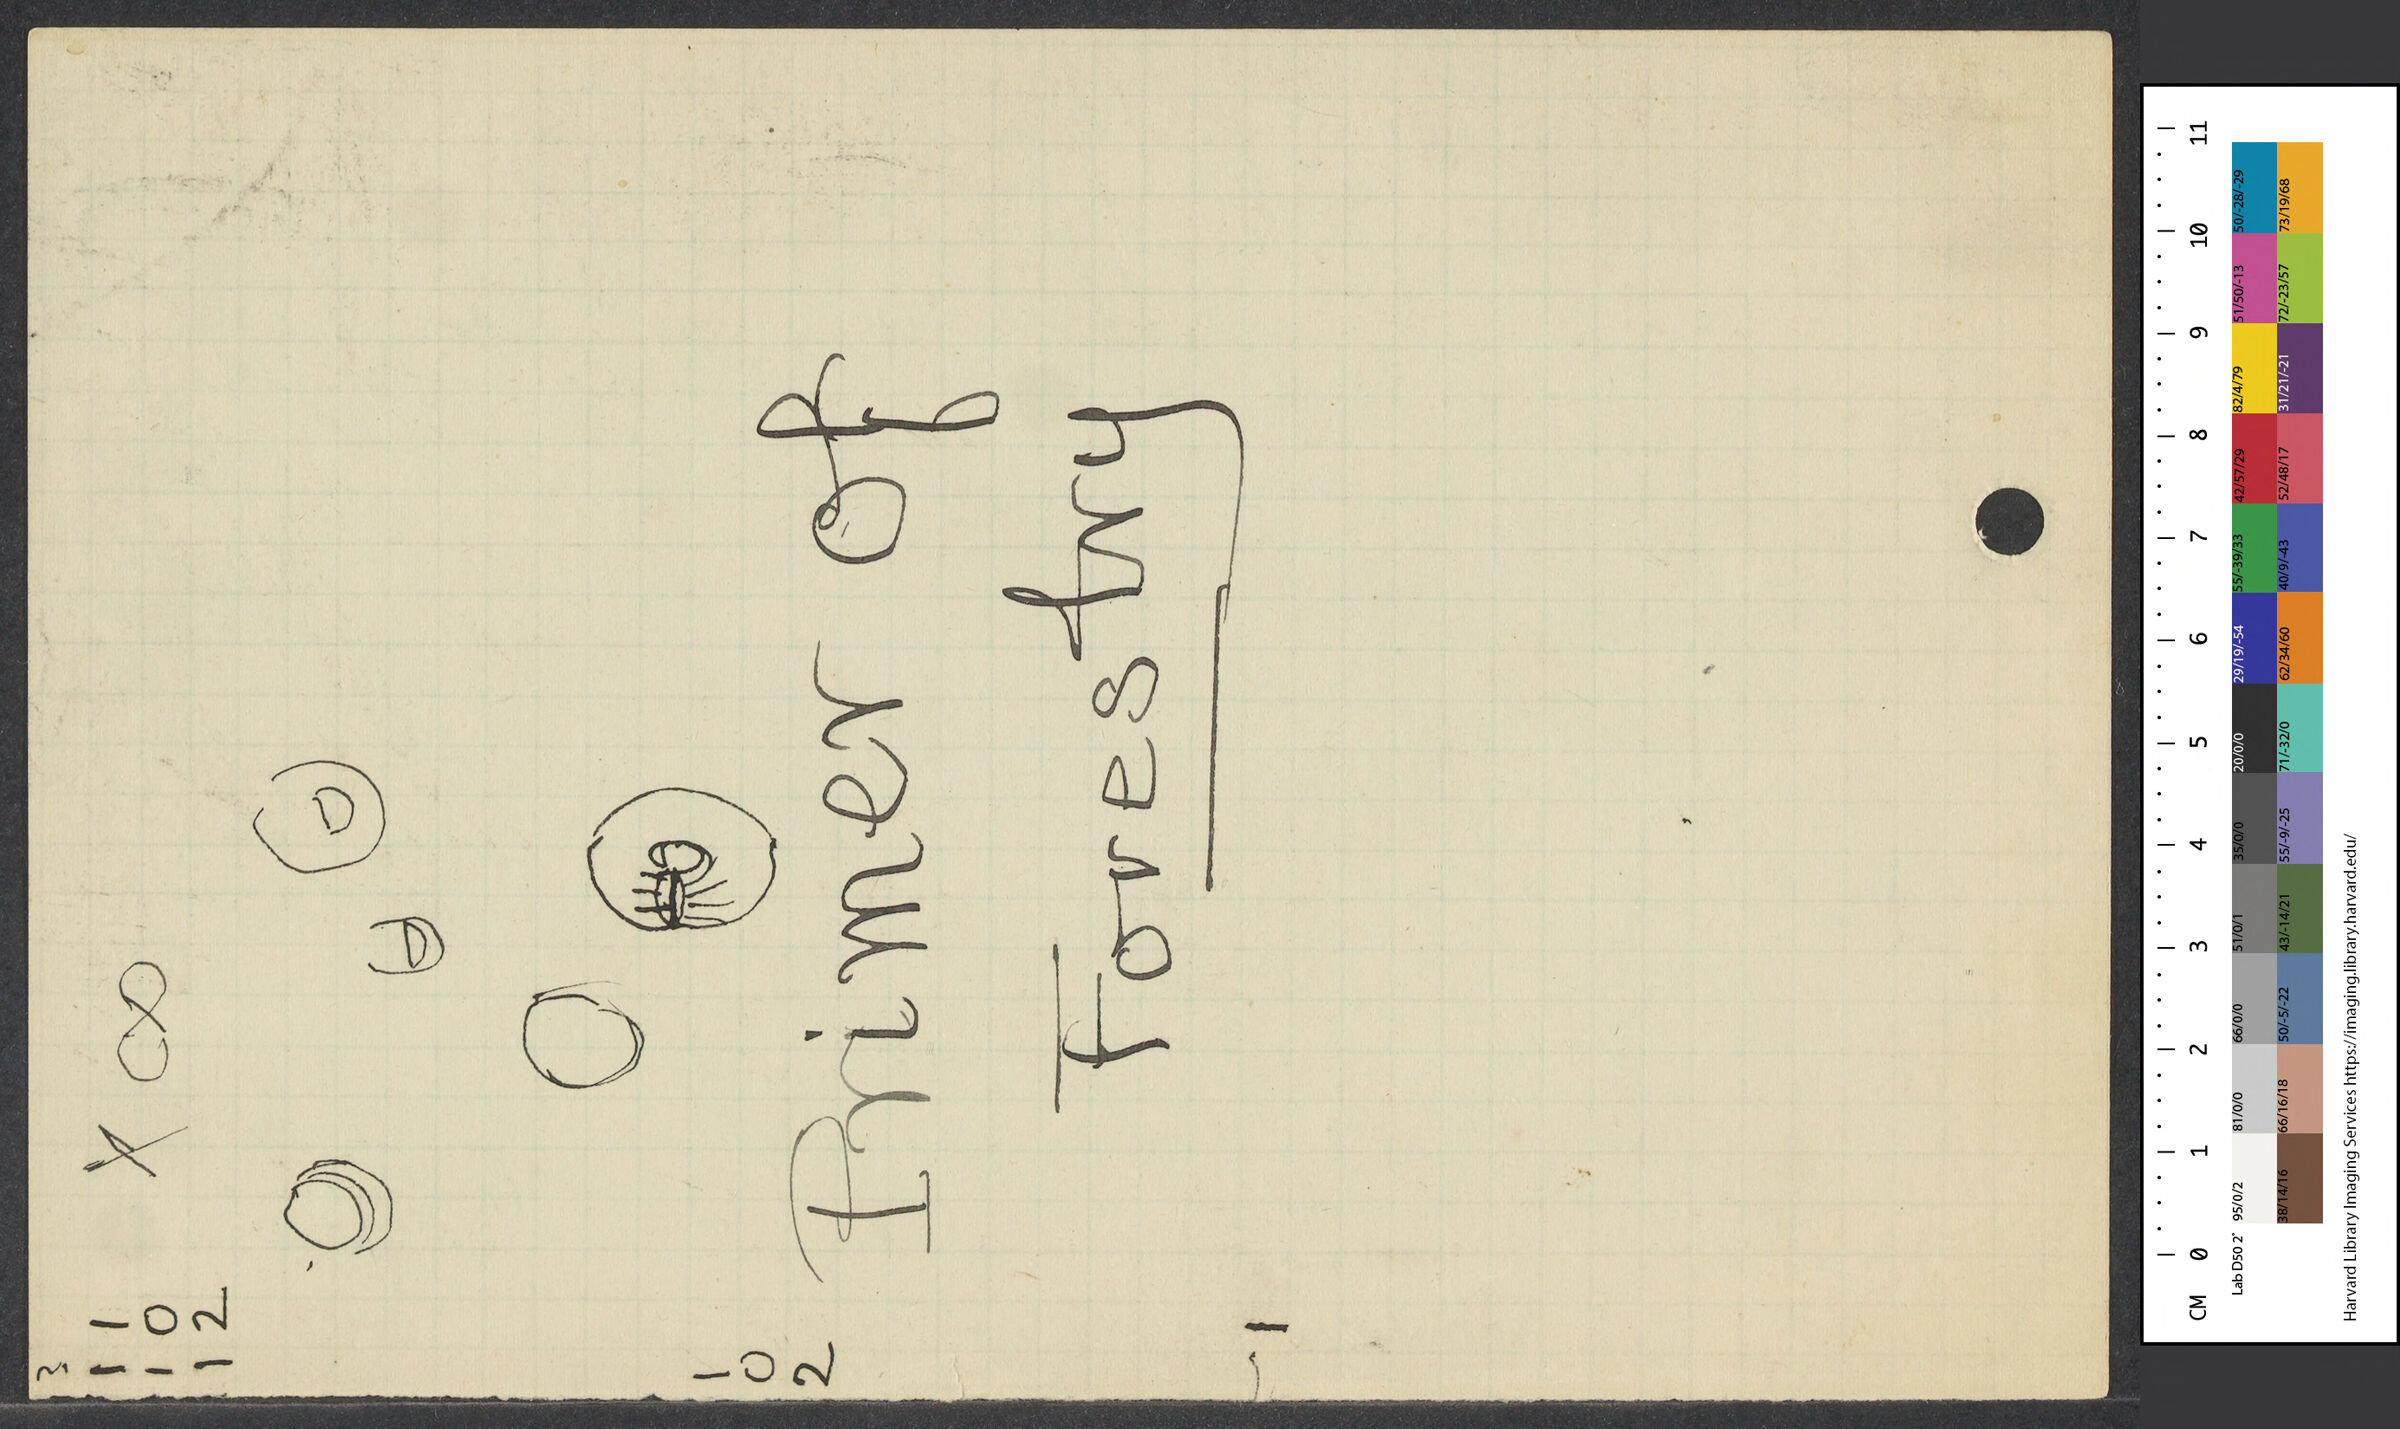 11
10
12
X
102
Primer of
Forestry
CM 0 1 2 3 4 5 6 7 8 9 10 11
Lab D50 2° 95/0/2 81/0/0 66/0/0 51/0/1 35/0/0 20/0/0 29/19/-54 55/-39/33 42/57/29 82/4/79 51/50/-13 50/-28/-29
38/14/16 66/16/18 50/-5/-22 43/-14/21 55/-9/-25 71/-32/0 62/34/60 40/9/-43 52/48/17 31/21/-21 72/-23/57 73/19/68
Harvard Library Imaging Services https://imaging.library.harvard.edu/